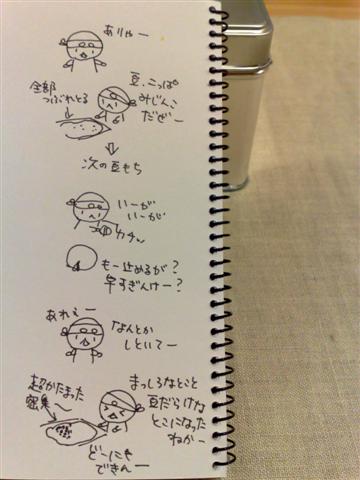 ありゃー
全部
つぶれとる
豆、こっぱ
みじんこ
だぜー
次の豆もち
いーが
いーが
カチッ
もー止めるが?
早すぎんけー?
あれぇー
なんとか
しといてー
超かたまった
密集〜
まっしろなとこと
豆だらけな
とこになった
ねかー
どーにも
できんー